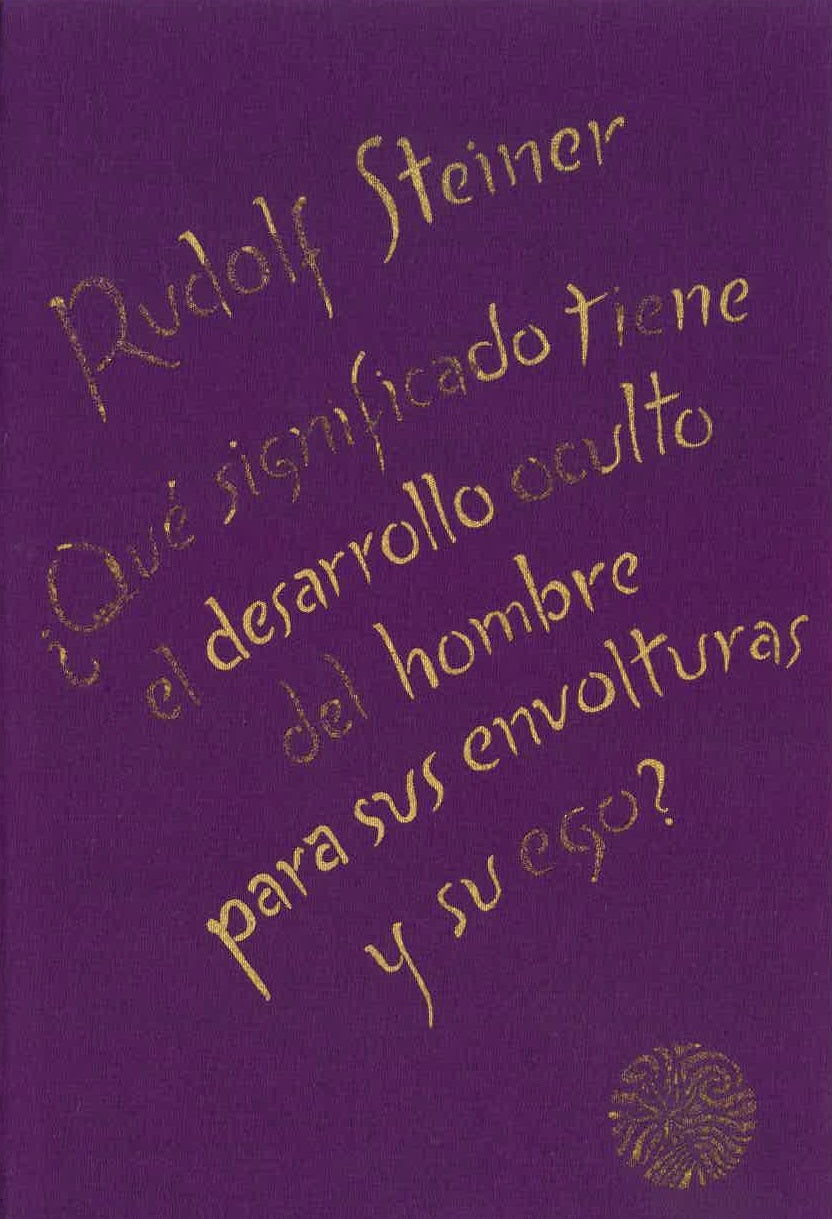 Rudolf Steiner
¿Qué significado tiene
el desarrollo oculto
del hombre
para sus envolturas
y su ego?